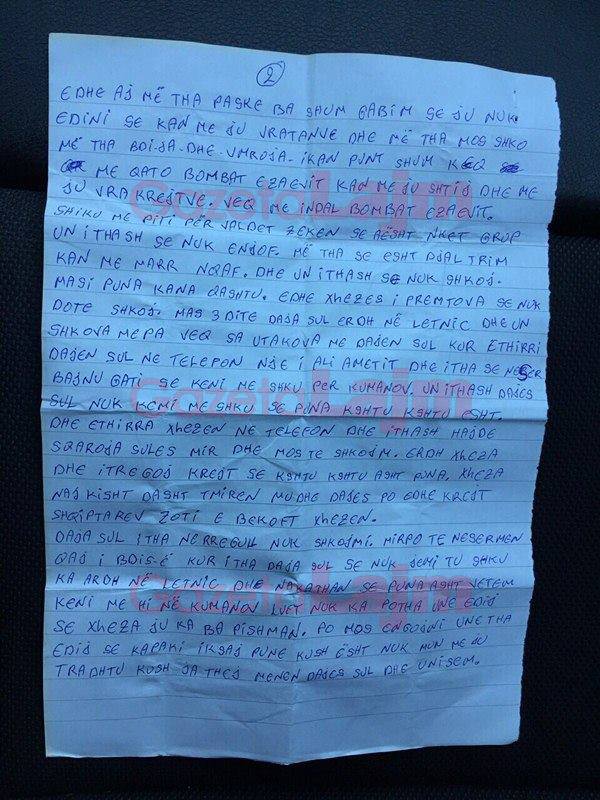 2
EDHE AJ MË THA PASKE BA SHUM GABIM SE JU NUK
EDINI SE KAN ME JU VRATANVE DHE MË THA MOS SHKO
MË THA BDI-JA-DHE-VMROJA-IKAN PUNT SHUM KEQ
ME QATO BOMBAT EZAEVIT KAN ME JU SHTIJ DHE ME
JU VRA KREJTVE. VEQ ME INDAL BOMBAT EZAEVIT.
SHIKU ME PITI PËR VALDET ZEKEN SE AËSHT NKET GRUP
UN ITHASH SE NUK ENJOF. MË THA SE ESHT DJAL TRIM
KAN ME MARR NQAF. DHE UN ITHASH SE NUK SHKOJ.
MASI PUNA KANA QASHTU. EDHE XHEZES I PREMTOVA SE NUK
DOTE SHKOJ. MAS 3 DITE DAJA SUL ERDH NË LETNIC DHE UN
SHKOVA MEPA VEQ SA UTAKOVA ME DAJEN SUL KUR ETHIRRI
DAJEN SUL NE TELEFON NJE I ALI AMETIT DHE ITHA SE NESER
BAJNU GATI SE KENI ME SHKU PER KUMANOV. UN ITHASH DAJES
SUL NUK KEMI ME SHKU SE PUNA KSHTU KSHTU ESHT.
DHE ETHIRRA XHEZEN NE TELEFON DHE ITHASH HAJDE
SQAROJA SULES MIR DHE MOS TE SHKOJM. ERDH XHEZA
DHE ITREGOJ KREJT SE KSHTU KSHTU ASHT PUNA. XHEZA
NAJ KISHT DASHT TMIREN MU DHE DAJES PO EDHE KREJT
SHQIPTAREV ZOTI E BEKOFT XHEZEN.
DAJA SUL ITHA NERREGULL NUK SHKOJMI. MIRPO TE NESERMEN
QAJ I BDIS-Ë KUR ITHA DAJA SUL SE NUK JEMI TU SHKU
KA ARDH NË LETNIC DHE NAKATHAN SE PUNA ASHT VETEM
KENI ME HI NË KUMANOV LUFT NUK KA POTHA UNE EDIJ
SE XHEZA JU KA BA PISHMAN. PO MOS ENGOJNI UNE THA
EDIJ SE KAPAKI IKSAJ PUNE KUSH ËSHT NUK MUN ME JU
TRADHTU KUSH JA THEJ MENEN DAJES SUL DHE UNISEM.
Gazeta Lajm
Gazeta Lajm
Gazeta Lajm